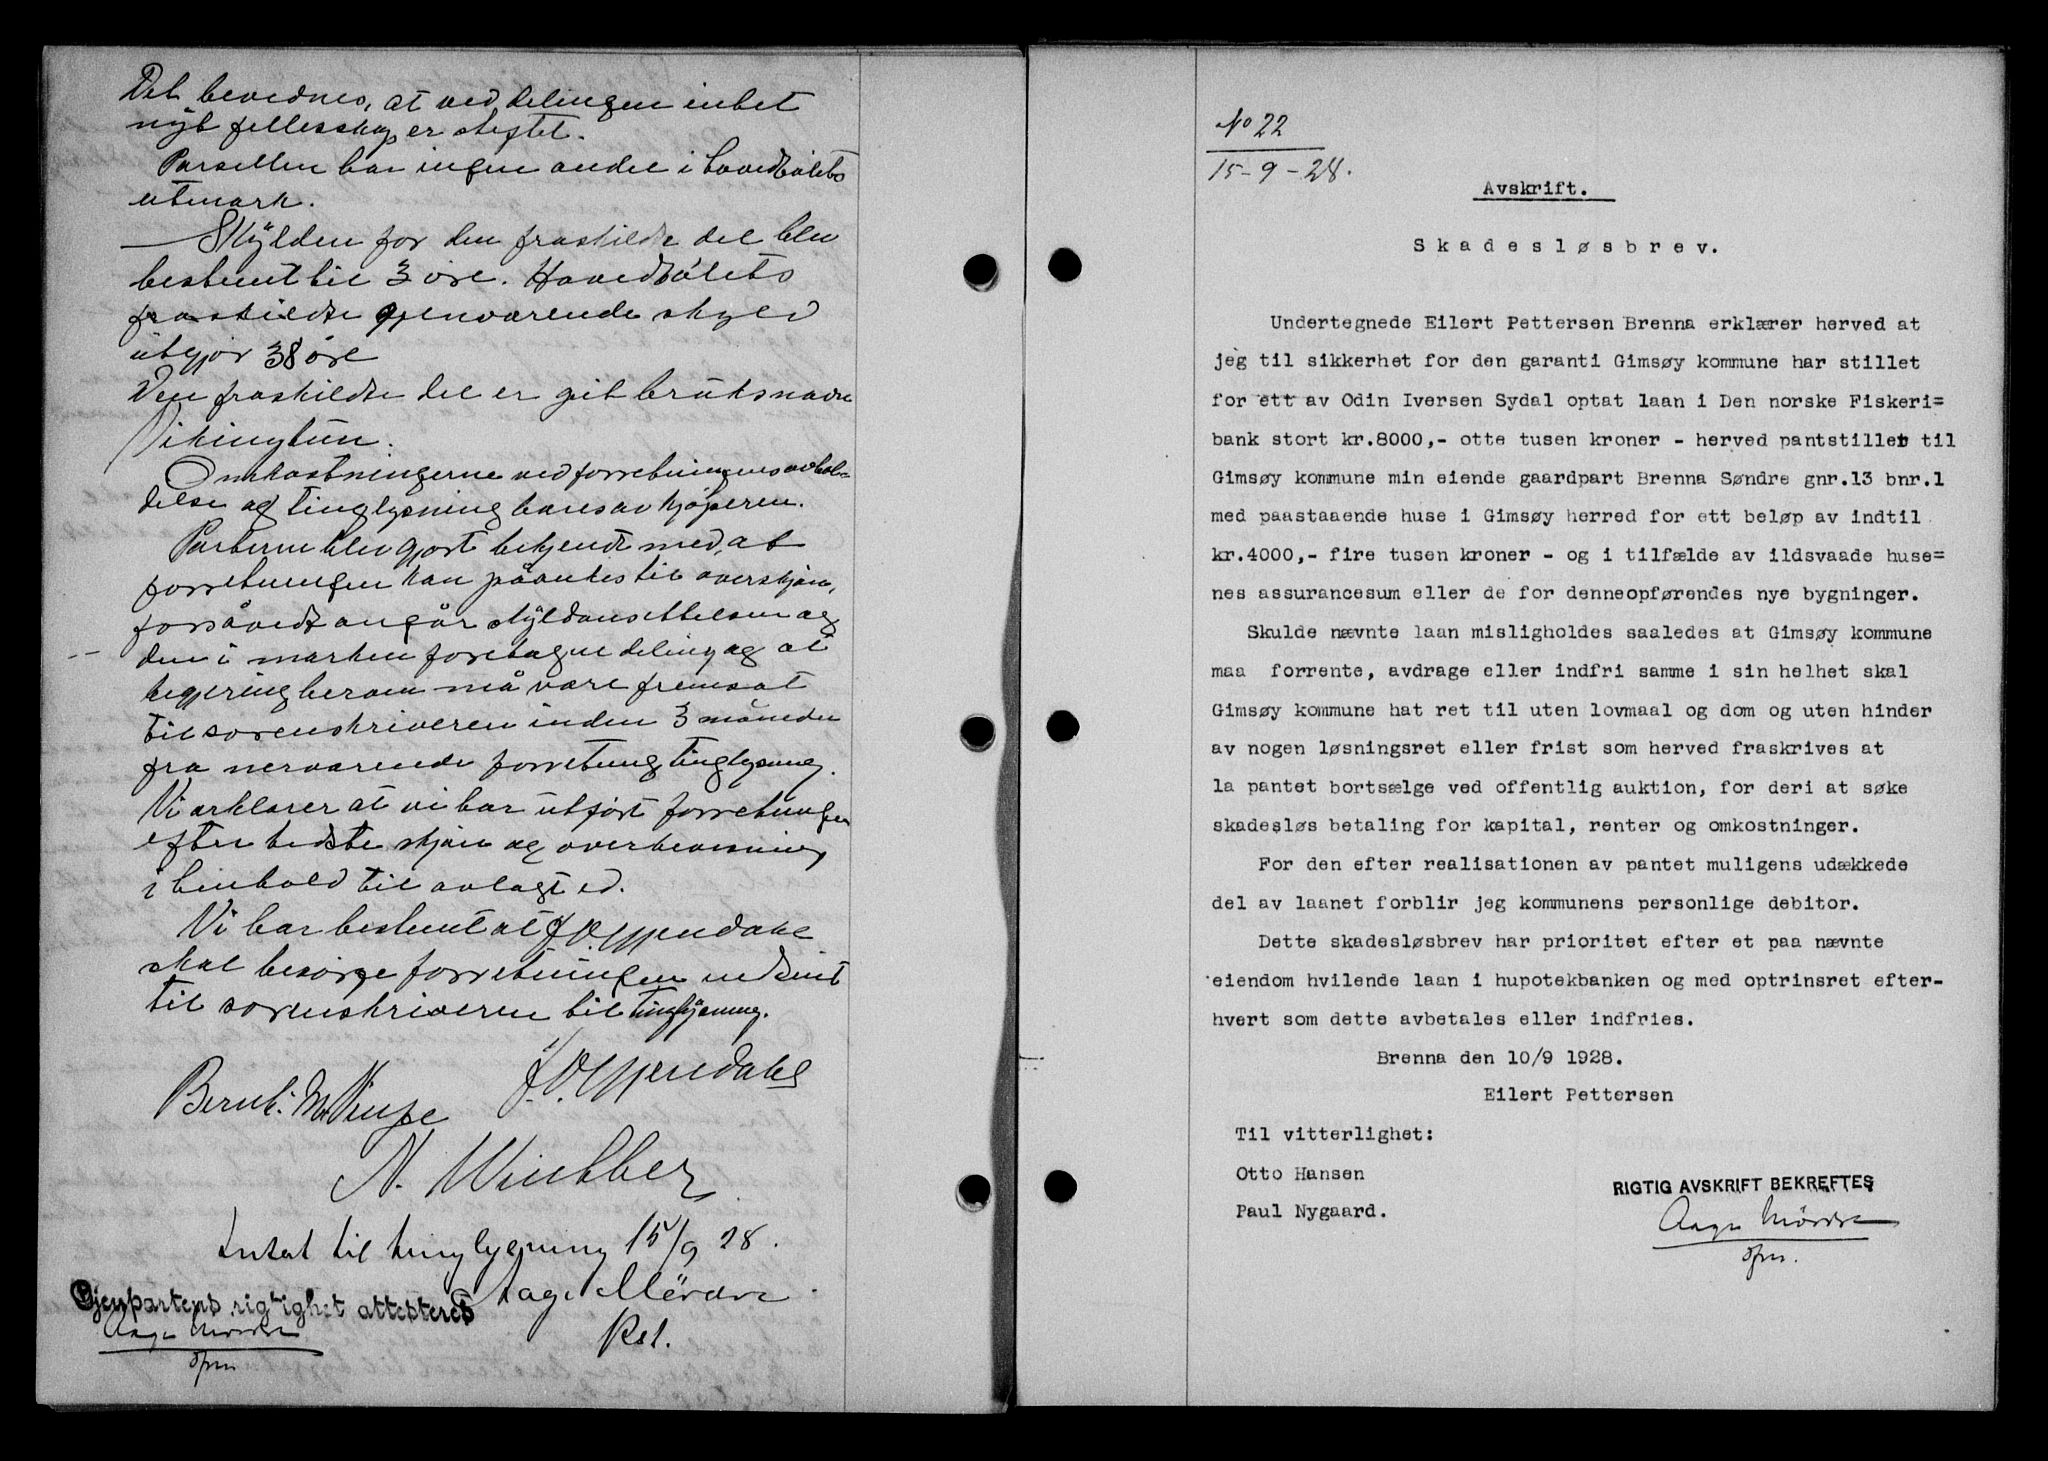 Det bevidnes, at ved delingen intet
nyt fellesskap er stiftet.
Parsellen har ingen andel i hovedbølets
utmark.
Skylden for den fraskildte del blev
bestemt til 3 øre. Hovedbølets
fraskildte gjenværende skyld
utgjør 38 øre
Den fraskildte del er git bruksnavn
Vikingtun.
Omkostningerne ved forretningens avhol-
delse og tinglysning bæres av kjøperen.
Parterne blev gjort bekjendt med, at
forretningen kan påankes til overskjøn,
forsåvidt angår skyldansettelsen og
den i marken foretagne deling og at
begjæring herom må være fremsat
til sorenskriveren inden 3 måneder
fra nerværende forretning tinglysning.
Vi erklærer at vi har utført forretningen
efter bedste skjøn og overbevisning
i henhold til avlagt ed.
Vi har bestemt at J. Oppendahl
skal besørge forretningen indsendt
til sorenskriveren til tinglysning.
J. Oppendahl
Bernh.
N. Winther
Intat til tinglysning 15/9 28.
Aage Mördre
Kst.
Gjenpartens rigtighet attesteres
Aage Mördre
No 22
15-9-28.
Avskrift.
Skadesløsbrev.
Undertegnede Eilert Pettersen Brenna erklærer herved at
jeg til sikkerhet for den garanti Gimsøy kommune har stillet
for ett av Odin Iversen Sydal optat laan i Den norske Fiskeri=
bank stort kr.8000,- otte tusen kroner - herved pantstiller til
Gimsøy kommune min eiende gaardpart Brenna Søndre gnr.13 bnr.1
med paastaaende huse i Gimsøy herred for ett beløp av indtil
kr.4000,- fire tusen kroner - og i tilfælde av ildsvaade huse=
nes assurancesum eller de for denneopførendes nye bygninger.
Skulde nævnte laan misligholdes saaledes at Gimsøy kommune
maa forrente, avdrage eller indfri samme i sin helhet skal
Gimsøy kommune hat ret til uten lovmaal og dom og uten hinder
av nogen løsningsret eller frist som herved fraskrives at
la pantet bortsælge ved offentlig auktion, for deri at søke
skadesløs betaling for kapital, renter og omkostninger.
For den efter realisationen av pantet muligens udækkede
del av laanet forblir jeg kommunens personlige debitor.
Dette skadesløsbrev har prioritet efter et paa nævnte
eiendom hvilende laan i hupotekbanken og med optrinsret efter-
hvert som dette avbetales eller indfries.
Brenna den 10/9 1928.
Eilert Pettersen
Til vitterlighet:
Otto Hansen
Paul Nygaard.
RIGTIG AVSKRIFT BEKREFTES
Aage Mördre